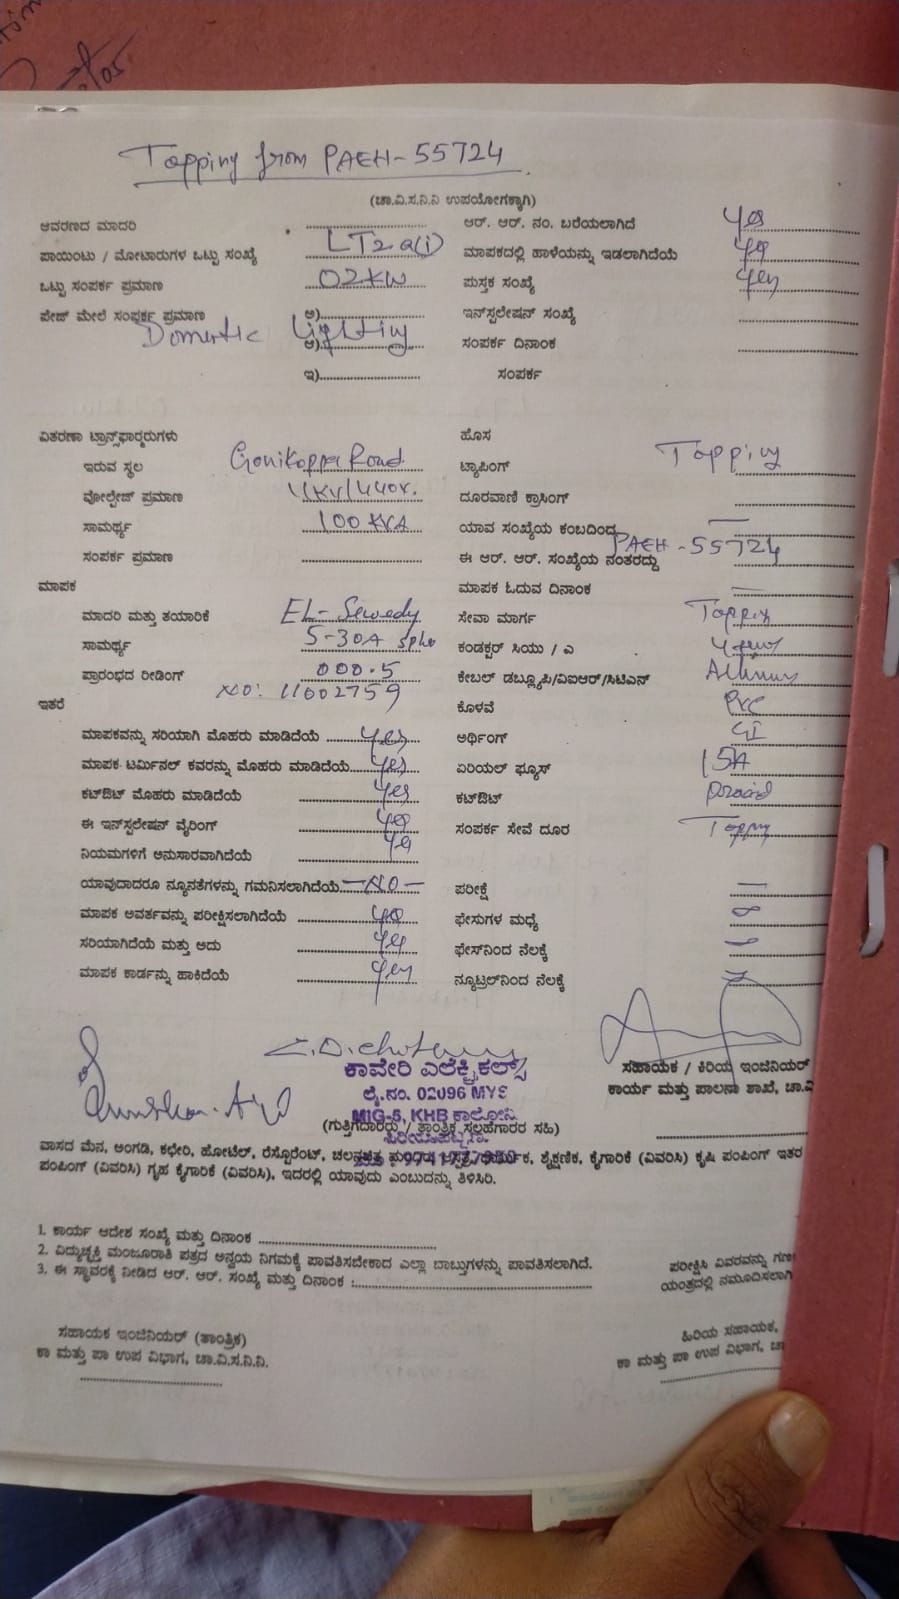 Tapping from PAEH-55724
(ಚಾ.ವಿ.ಸ.ನಿ.ನಿ ಉಪಯೋಗಕ್ಕಾಗಿ)
ಆವರಣದ ಮಾದರಿ
ಆರ್. ಆರ್. ನಂ. ಬರೆಯಲಾಗಿದೆ yes
ಪಾಯಿಂಟು / ಮೋಟಾರುಗಳ ಒಟ್ಟು ಸಂಖ್ಯೆ LT2a(i)
ಮಾಪಕದಲ್ಲಿ ಹಾಳೆಯನ್ನು ಇಡಲಾಗಿದೆಯೆ yes
ಒಟ್ಟು ಸಂಪರ್ಕ ಪ್ರಮಾಣ 02KW
ಪುಸ್ತಕ ಸಂಖ್ಯೆ yes
ಪೇಜ್ ಮೇಲೆ ಸಂಪರ್ಕ ಪ್ರಮಾಣ ಅ)
ಇನ್‌ಸ್ಟಲೇಷನ್ ಸಂಖ್ಯೆ
Domestic Lighting
ಆ)
ಸಂಪರ್ಕ ದಿನಾಂಕ
ಇ)
ಸಂಪರ್ಕ
ವಿತರಣಾ ಟ್ರಾನ್ಸ್‌ಫಾರ್ಮರುಗಳು
ಹೊಸ
ಇರುವ ಸ್ಥಲ Gonikoppa Road
ಟ್ಯಾಪಿಂಗ್ Tapping
ವೋಲ್ಟೇಜ್ ಪ್ರಮಾಣ 11KV/440v.
ದೂರವಾಣಿ ಕ್ರಾಸಿಂಗ್
ಸಾಮರ್ಥ್ಯ 100 KVA
ಯಾವ ಸಂಖ್ಯೆಯ ಕಂಬದಿಂದ
ಸಂಪರ್ಕ ಪ್ರಮಾಣ
ಈ ಆರ್. ಆರ್. ಸಂಖ್ಯೆಯ ನಂತರದ್ದು PAEH-55724
ಮಾಪಕ
ಮಾಪಕ ಓದುವ ದಿನಾಂಕ
ಮಾದರಿ ಮತ್ತು ತಯಾರಿಕೆ EL-Sewedy
ಸೇವಾ ಮಾರ್ಗ Tapping
ಸಾಮರ್ಥ್ಯ 5-30A
ಕಂಡಕ್ಟರ್ ಸಿಯು / ಎ
ಪ್ರಾರಂಭದ ರೀಡಿಂಗ್ 000.5
ಕೇಬಲ್ ಡಬ್ಲ್ಯೂಪಿ/ವಿಐಆರ್/ಸಿಟಿಎನ್
NO: 11002759
ಇತರೆ
ಕೊಳವೆ PVC
ಮಾಪಕವನ್ನು ಸರಿಯಾಗಿ ಮೊಹರು ಮಾಡಿದೆಯೆ yes
ಅರ್ಥಿಂಗ್ GI
ಮಾಪಕ ಟರ್ಮಿನಲ್ ಕವರನ್ನು ಮೊಹರು ಮಾಡಿದೆಯೆ yes
ಏರಿಯಲ್ ಫ್ಯೂಸ್ 15A
ಕಟ್‌ಔಟ್ ಮೊಹರು ಮಾಡಿದೆಯೆ yes
ಕಟ್‌ಔಟ್
ಈ ಇನ್‌ಸ್ಟಲೇಷನ್ ವೈರಿಂಗ್ yes
ಸಂಪರ್ಕ ಸೇವೆ ದೂರ Tapping
ನಿಯಮಗಳಿಗೆ ಅನುಸಾರವಾಗಿದೆಯೆ yes
ಯಾವುದಾದರೂ ನ್ಯೂನತೆಗಳನ್ನು ಗಮನಿಸಲಾಗಿದೆಯೆ -NO-
ಪರೀಕ್ಷೆ
ಮಾಪಕ ಅವರ್ತವನ್ನು ಪರೀಕ್ಷಿಸಲಾಗಿದೆಯೆ yes
ಫೇಸುಗಳ ಮಧ್ಯೆ
ಸರಿಯಾಗಿದೆಯೆ ಮತ್ತು ಅದು yes
ಫೇಸ್‌ನಿಂದ ನೆಲಕ್ಕೆ
ಮಾಪಕ ಕಾರ್ಡನ್ನು ಹಾಕಿದೆಯೆ yes
ನ್ಯೂಟ್ರಲ್‌ನಿಂದ ನೆಲಕ್ಕೆ
ಕಾವೇರಿ ಎಲೆಕ್ಟ್ರಿಕಲ್ಸ್
ಸಹಾಯಕ / ಕಿರಿಯ ಇಂಜಿನಿಯರ್
ಲೈ.ನಂ. 02096 MYS
ಕಾರ್ಯ ಮತ್ತು ಪಾಲನಾ ಶಾಖೆ, ಚಾ.ವಿ
MIG-5, KHB ಕಾಲೋನಿ
(ಗುತ್ತಿಗೆದಾರರು / ತಾಂತ್ರಿಕ ಸಲಹೆಗಾರರ ಸಹಿ)
ವಾಸದ ಮನೆ, ಅಂಗಡಿ, ಕಛೇರಿ, ಹೋಟೆಲ್, ರೆಸ್ಟೋರೆಂಟ್, ಚಲನಚಿತ್ರ ಶೈಕ್ಷಣಿಕ, ಕೈಗಾರಿಕೆ (ವಿವರಿಸಿ) ಕೃಷಿ ಪಂಪಿಂಗ್ ಇತರ
ಪಂಪಿಂಗ್ (ವಿವರಿಸಿ) ಗೃಹ ಕೈಗಾರಿಕೆ (ವಿವರಿಸಿ), ಇದರಲ್ಲಿ ಯಾವುದು ಎಂಬುದನ್ನು ತಿಳಿಸಿರಿ.
1. ಕಾರ್ಯ ಆದೇಶ ಸಂಖ್ಯೆ ಮತ್ತು ದಿನಾಂಕ
2. ವಿದ್ಯುಚ್ಛಕ್ತಿ ಮಂಜೂರಾತಿ ಪತ್ರದ ಅನ್ವಯ ನಿಗಮಕ್ಕೆ ಪಾವತಿಸಬೇಕಾದ ಎಲ್ಲಾ ಬಾಬ್ತುಗಳನ್ನು ಪಾವತಿಸಲಾಗಿದೆ.
3. ಈ ಸ್ಥಾವರಕ್ಕೆ ನೀಡಿದ ಆರ್. ಆರ್. ಸಂಖ್ಯೆ ಮತ್ತು ದಿನಾಂಕ :
ಪರೀಕ್ಷಿಸಿ ವಿವರವನ್ನು ಗಣಕ
ಯಂತ್ರದಲ್ಲಿ ನಮೂದಿಸಲಾಗಿ
ಸಹಾಯಕ ಇಂಜಿನಿಯರ್ (ತಾಂತ್ರಿಕ)
ಹಿರಿಯ ಸಹಾಯಕ,
ಕಾ ಮತ್ತು ಪಾ ಉಪ ವಿಭಾಗ, ಚಾ.ವಿ.ಸ.ನಿ.ನಿ.
ಕಾ ಮತ್ತು ಪಾ ಉಪ ವಿಭಾಗ, ಚಾ